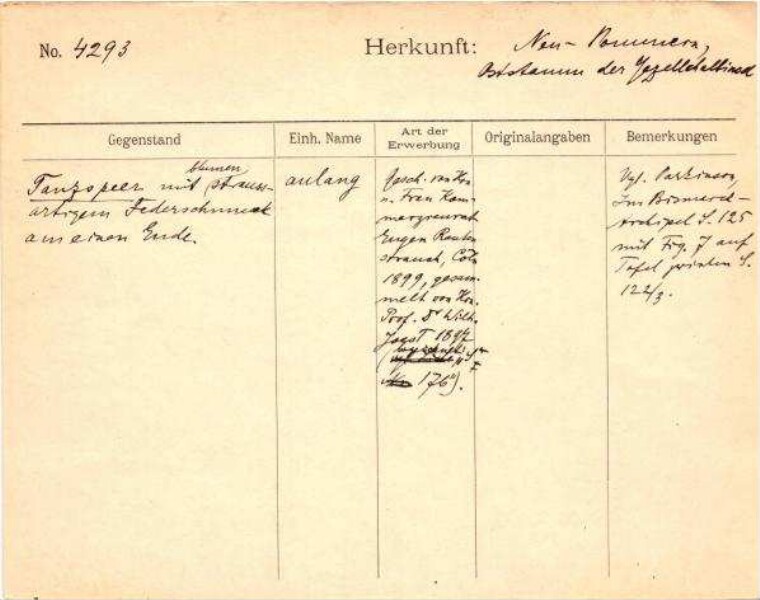 No. 4293
Herkunft: Neu-Pommern,
der Gazellehalbinsel
Gegenstand
Einh. Name
Art der Erwerbung
Originalangaben
Bemerkungen
blumen
Tanzspeer mit strauss-
artigem Federschmuck
am einen Ende.
aulang
Gesch. von Hrn
u. Frau Kom-
merzienrat
Eugen Rauten
strauch, Cöln
1899, gesam-
melt von Hrn.
Prof. Dr Wilh.
Joest 1897
(bezeichnet
176").
Vgl. Parkinson,
Im Bismarck-
Archipel S. 125
mit Fig. 7 auf
Tafel zwischen S.
122/3.